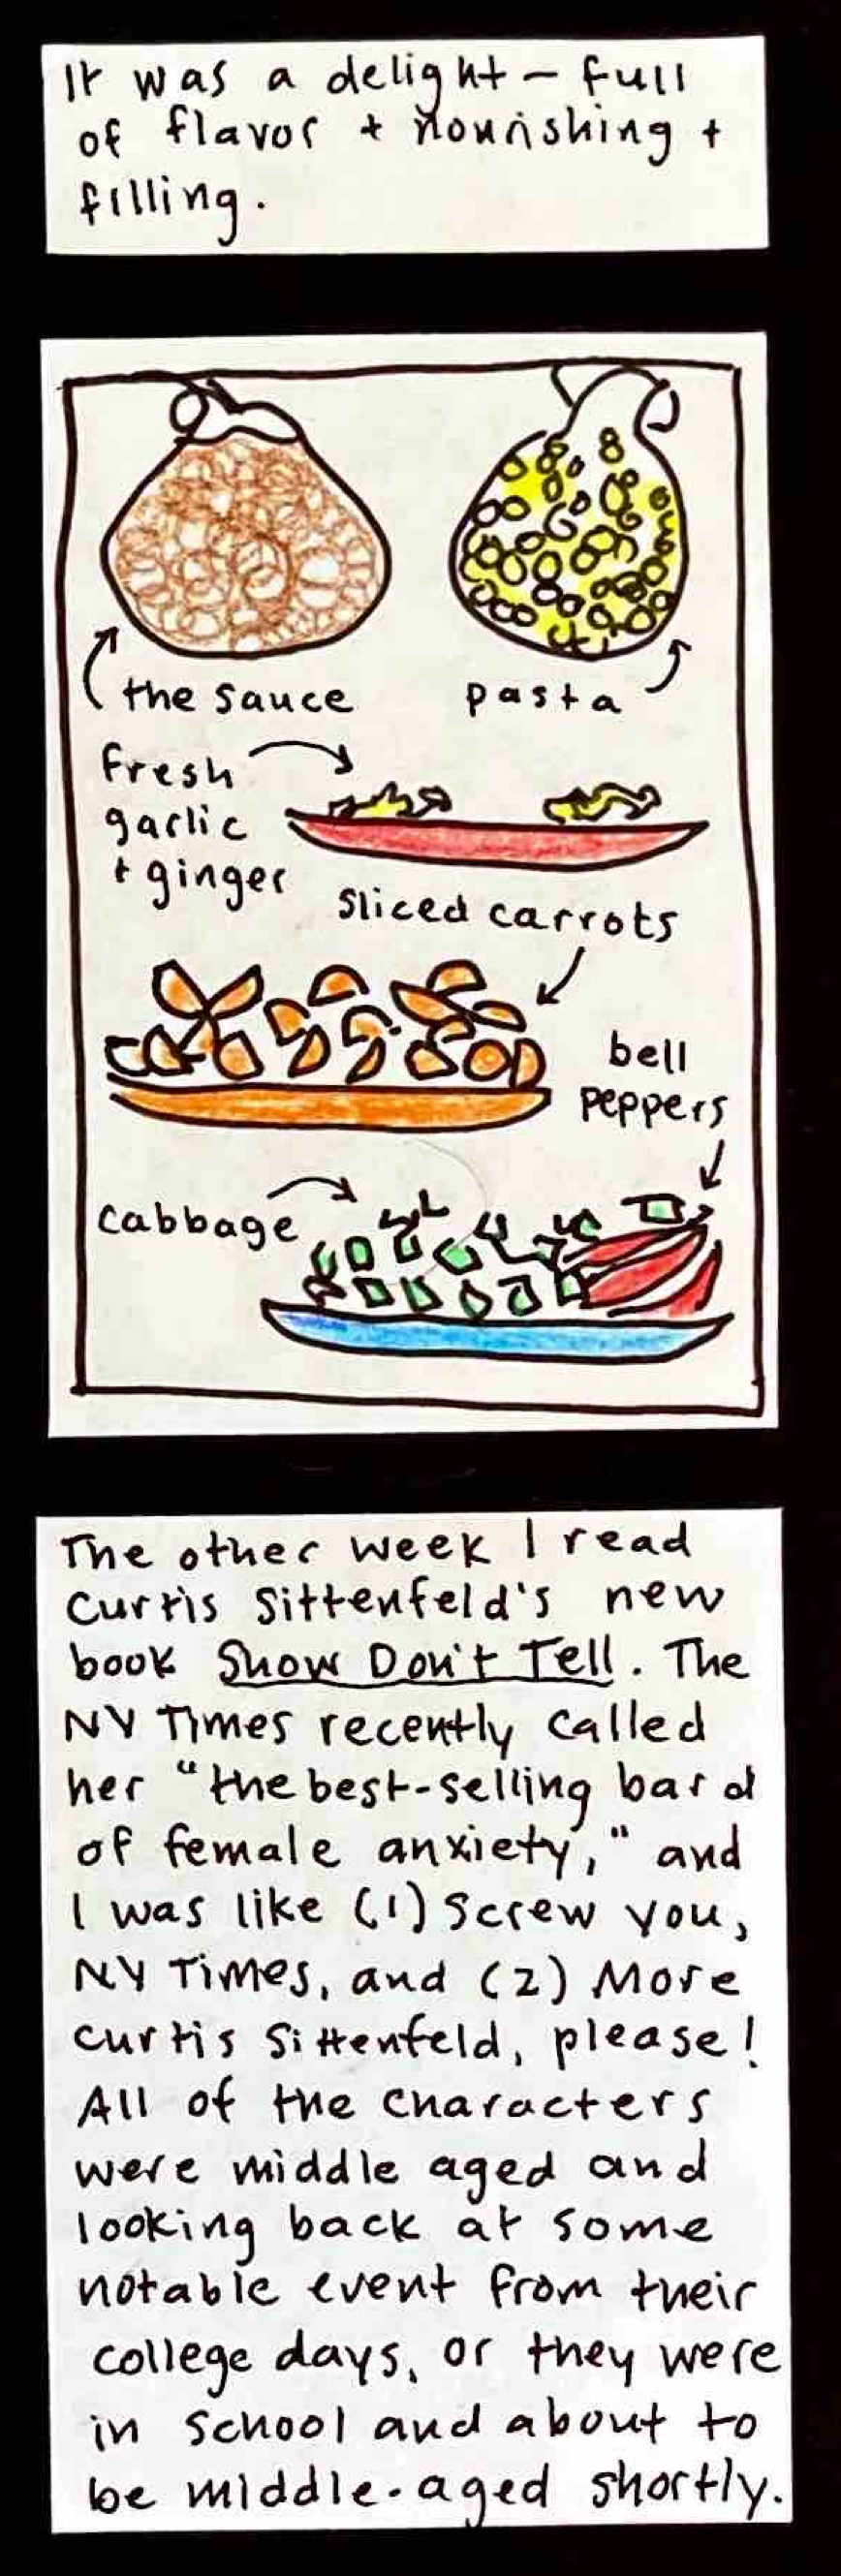 It was a delight – full
of flavor + nourishing +
filling.
the sauce
pasta
fresh
garlic
+ ginger
sliced carrots
bell
peppers
cabbage
The other week I read
Curtis Sittenfeld's new
book Show Don't Tell. The
NY Times recently called
her "the best-selling bard
of female anxiety," and
I was like (1) Screw you,
NY Times, and (2) More
Curtis Sittenfeld, please!
All of the characters
were middle aged and
looking back at some
notable event from their
college days, or they were
in school and about to
be middle-aged shortly.